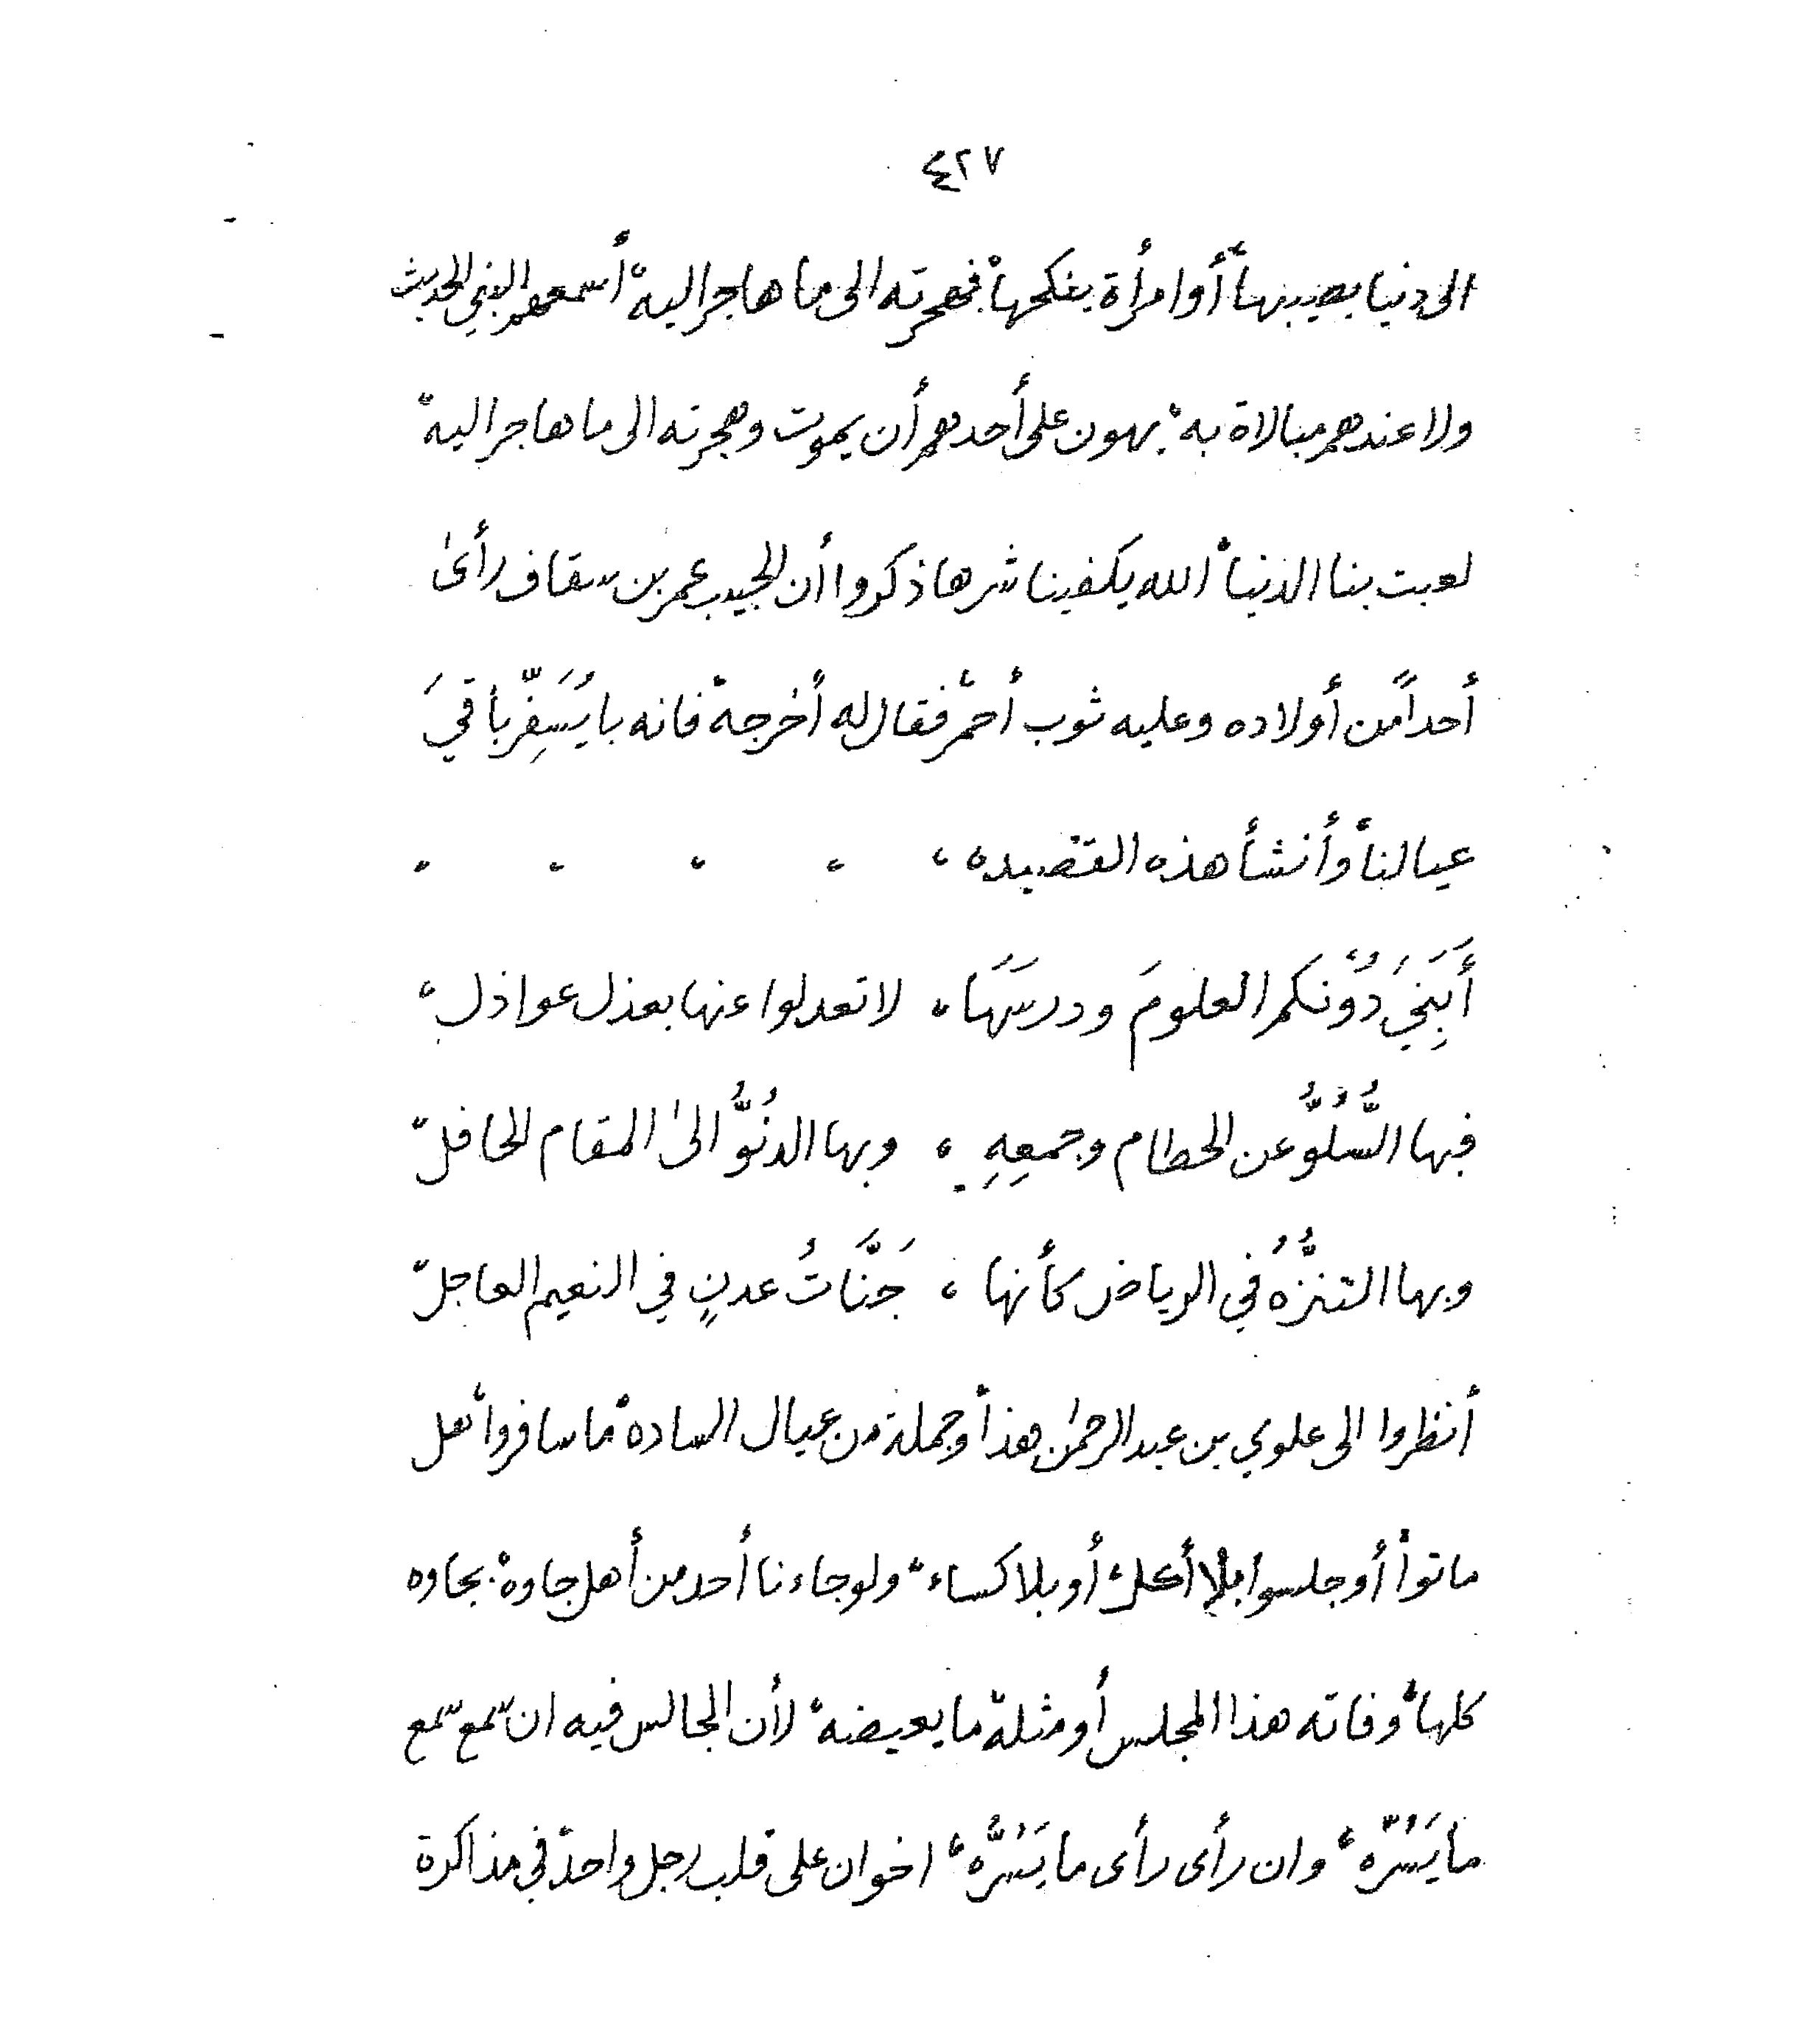 ٤٢٧
الى دنيا يصيبها، أو امرأة ينكحها، فهجرته الى ما هاجر اليه، أسمعهم النبي الحديث
ولا عندهم مبالاة به، يهون على أحدهم أن يموت وهجرته الى ما هاجر اليه،
لعبت بنا الدنيا، الله يكفينا شرها ذكروا أن الحبيب عمر بن سقاف رأىٰ
أحداً من أولاده وعليه ثوب أحمر، فقال له أخرجه، فانه با يُسَفِّر باقيَ
عيالنا، وأنشأ هذه القصيده ، ، ، ، ،
أَبَنِيَّ دُوْنَكم العلومَ ودرسَهَا ، لا تعدلوا عنها بعذل عواذل ،
فبها السُّلُوُّ عن الحطام وجمعِهِ ، وبها الدنُوُّ الىٰ المقام الحافل ،
وبها التنزُّهُ في الرياض كأنها ، جَنَّاتُ عدنٍ في النعيم العاجل ،
أنظروا الى علوي بن عبد الرحمٰن هذا، وجملة من عيال الساده، ما سافروا، هل
ماتوا، أو جلسوا بلا أكل، أو بلا كساء، ولو جاءنا أحد من أهل جاوه، بجاوه
كلها، وفاته هذا المجلس أو مثله، ما يعيضه، لأن الجالس فيه ان سمع سمع
ما يَسُرّه، وان رأى رأى ما يَسُرُّه، اخوان على قلب رجل واحد، في مذاكرة